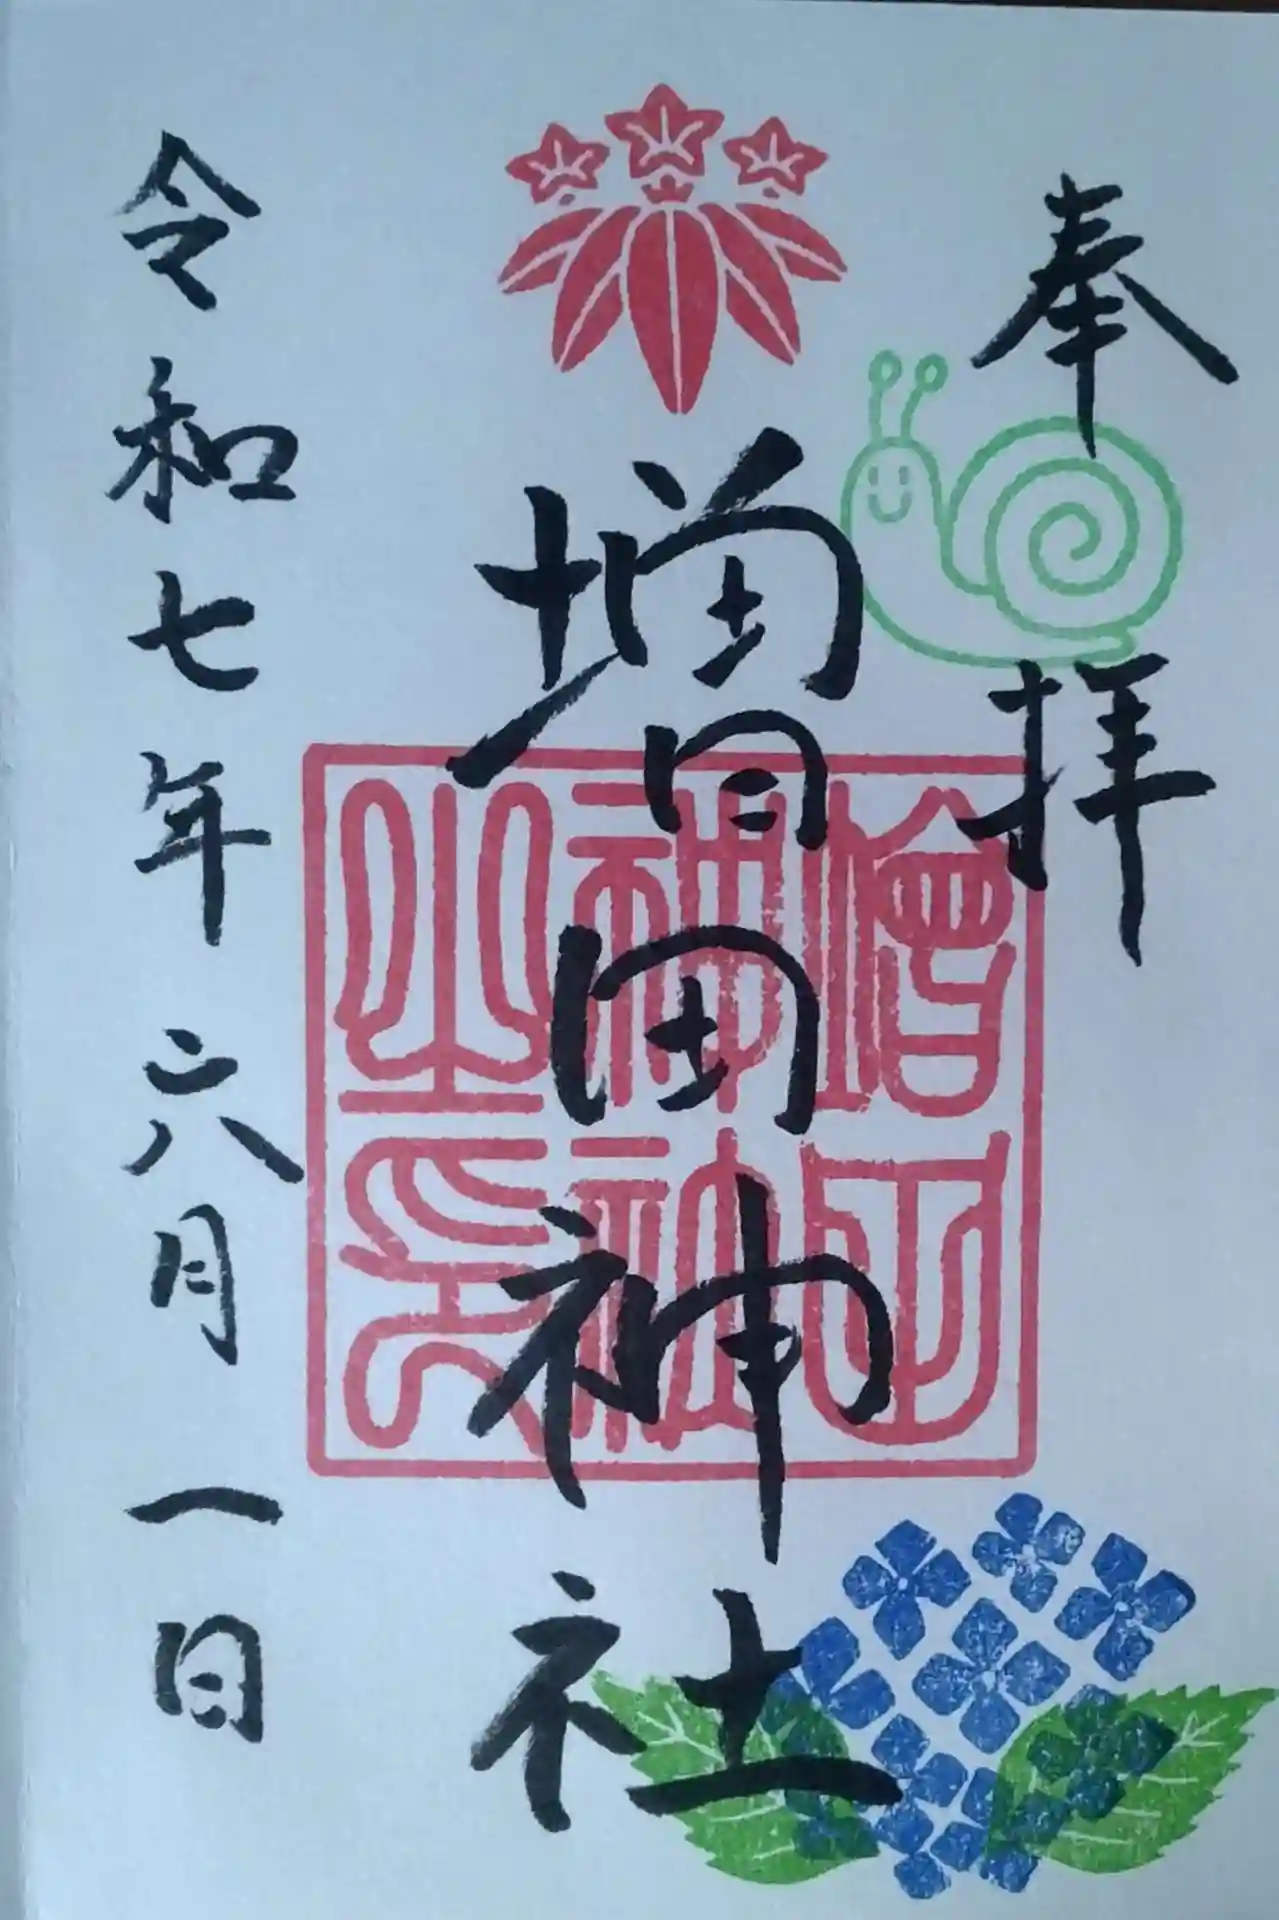 奉拝
増田神社
増田神社之印
令和七年六月一日